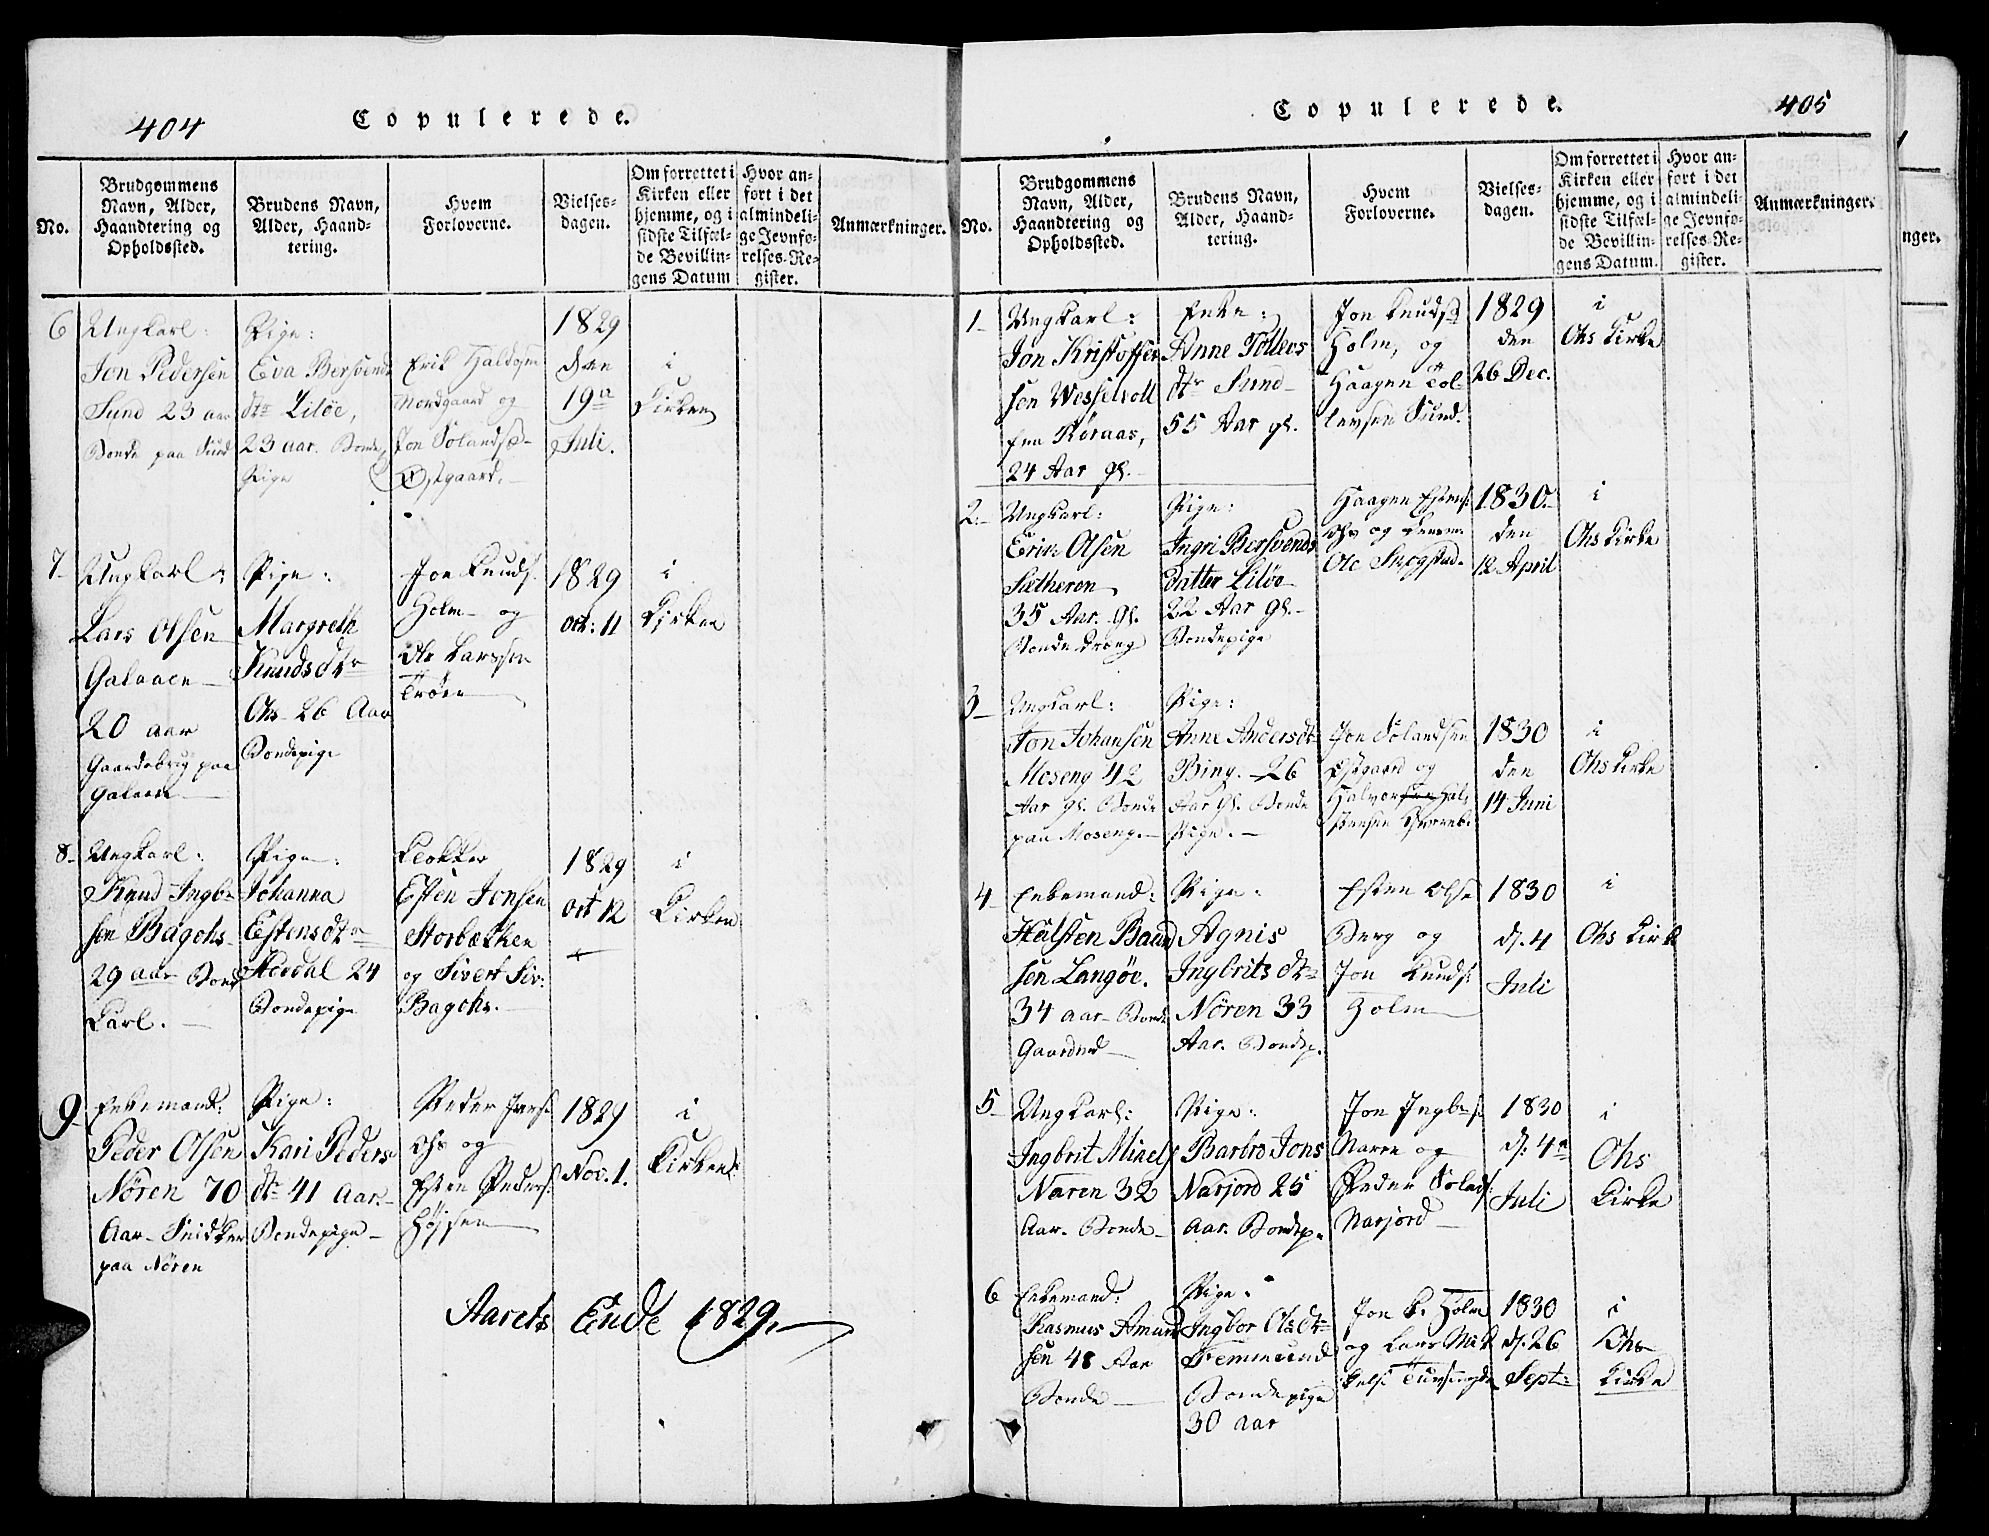 404
Copulerede.
No.
Brudgommens
Navn, Alder,
Haandtering og
Opholdssted.
Brudens Navn,
Alder, Haand-
tering.
Hvem
Forloverne.
Vielses-
dagen.
Om forrettet i
Kirken eller
hjemme, og i
sidste Tilfæl-
de Bevillin-
gens Datum
Hvor an-
ført i det
almindeli-
ge Jevnfø-
relses-Re-
gister.
Anmærkninger.
6
Ungkarl:
Jon Pedersen
Sund 23 aar
Bonde paa Sund
Pige:
Eva Bersvends
dtr Liløe,
23 aar. Bonde
Pige
Erik Haldosen
Nordgaard og
Jon Tolandsen
Østgaard.
1829
den
19de
Juli.
i
Kirken
7
Ungkarl:
Lars Olsen
Galaaen
20 aar
Gaardebrug paa
Galaaen
Pige:
Margreth
Knudsdtr
Ohs 26 Aar
Bondepige
Jon Knuds.
Holm og
Ole Larssen
Trøen
1829
oct: 11
i
Kirken
8
Ungkarl:
Knud Ingbr
sen Bagohs
29 aar Bonde
Karl.
Pige:
Johanna
Estensdtr
Hordal 24
Bondepige
Klokker
Esten Jonsen
Storbækken
og Sivert Siv:
Bagohs.
1829
oct 12
i
Kirken
9
Enkemand:
Peder Olsen
Nören 70
Aar Snidker
paa Nören
Pige:
Kari Peders
dtr 41 Aar
Bondepige
Peder Jons:
Ohs og
Esten Peders:
Høysen
1829
Nov. 1.
i
Kirken
Aarets Ende 1829.
Copulerede.
405
No.
Brudgommens
Navn, Alder,
Haandtering og
Opholdssted.
Brudens Navn,
Alder, Haand-
tering.
Hvem
Forloverne.
Vielses-
dagen.
Om forrettet i
Kirken eller
hjemme, og i
sidste Tilfæl-
de Bevillin-
gens Datum.
Hvor an-
ført i det
almindeli-
ge Jevnfø-
relses-Re-
gister.
Anmærkninger.
1
Ungkarl:
Jon Kristoffer
sen Wesselvoll
fra Røraas,
24 Aar gl.
Enke:
Anne Tollevs
dtr Sund
55 Aar gl.
Jon Knuds:
Holm, og
Haagen Tol-
levsen Sund.
1829
den
26 Dec.
i
Ohs Kirke
2
Ungkarl:
Erik Olsen
Sætheren
35 Aar. gl.
Bonde dreng
Pige:
Ingri Bersvends
datter Liløe
22 Aar gl.
Bondepige
Haagen Estens:
Ohs og
Ole
1830.
den
12 April
i
Ohs Kirke
3
Ungkarl:
Jon Johansen
Moseng 42
Aar gl. Bonde
paa Moseng.
Pige:
Anne Andersdt
Bing. 26
Aar gl. Bonde
Pige.
Jon Tolandsen
Østgaard og
Halvor Hal-
stensen
1830
den
14 Juni
i
Ohs Kirke
4
Enkemand:
Halsten Baard
sen Langöe.
34 aar Bonde
Pige:
Agnis
Ingbrits dtr
Nören 33
Aar. Bondep.
Esten Olse
Berg og
Jon Knuds:
Holm
1830
d. 4
Juli
i
Ohs Kirk
5
Ungkarl:
Ingbrit Mikels
Naren 32
Aar. Bonde
Pige:
Barbro Jons
Narjord 25
Aar. Bondep.
Jon Ingbr:
Naren og
Peder Tolads:
Narjord
1830
d. 4de
Juli
i
Ohs
Kirke
6
Enkemand:
Rasmus Amund
sen 48 Aar
Bonde
Pige:
Ingbor Olsdtr
Femmsund
Bondepige
30 aar
Jon K. Holm
og Lars Mik
kels:
1830
d. 26
Sept:
i
Ohs
Kirke
nger.